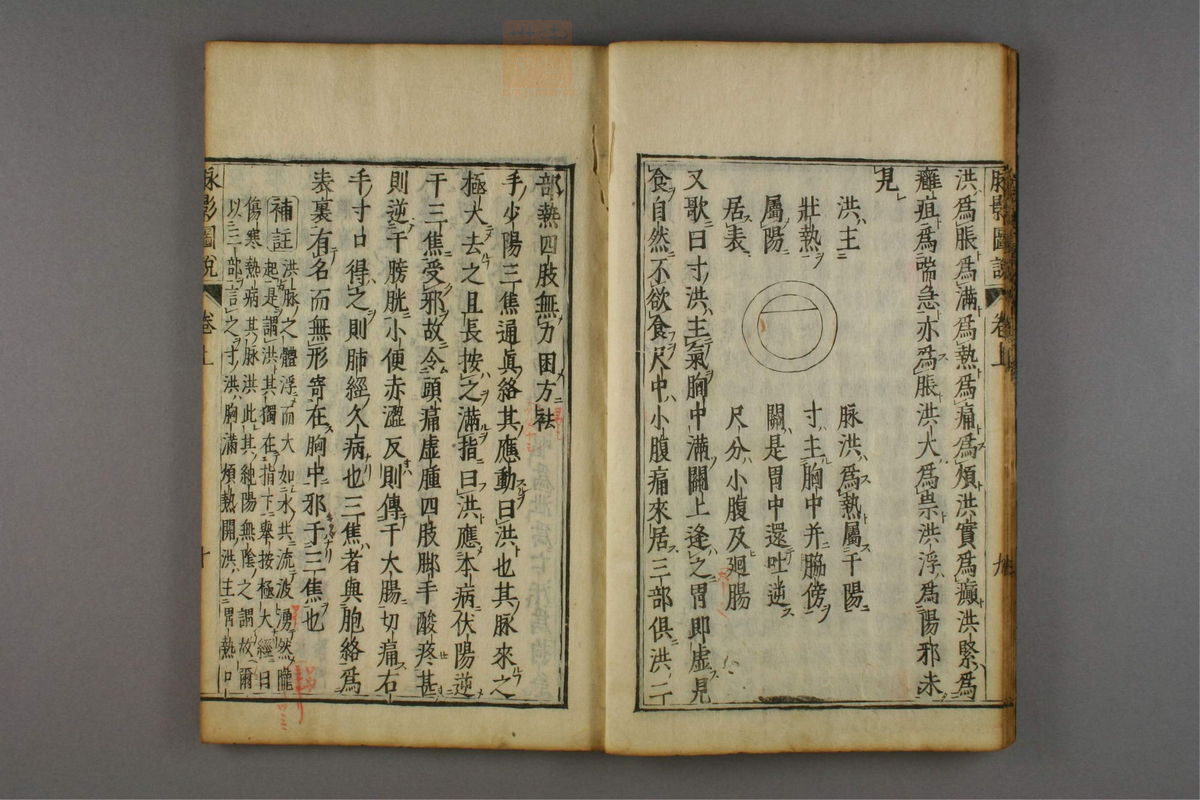 洪爲脹爲滿爲熱爲痛爲煩洪實爲癲洪緊爲
癰疽爲喘急亦爲脹洪大爲祟洪浮爲陽邪未
見
洪主
壯熱
屬陽
居表
脉洪爲熱屬于陽
寸主胸中并脇傍
關是胃中還吐逆
尺分小腹及廻腸
又歌曰寸洪主氣胸中滿關上逢之胃即虚見
食自然不欲食尺中小腹痛來居三部俱洪二
脉影圖說 卷上 九
部熱四肢無力困方袪
手少陽三焦通眞絡其應動曰洪也其脉來之
極大去之且長按之滿指曰洪應本病伏陽逆
干三焦受邪故令頭痛虚腫四肢脚手酸疼甚
則逆干膀胱小便赤澀反則傳干大腸切痛右
手寸口得之則肺經久病也三焦者與胞絡爲
表裏有名而無形寄在胸中邪于三焦也
補註
洪脉之體浮而大如水共流波湧然隴
起是謂洪其獨在指下舉按極大經曰
傷寒熱病其脉洪此其純陽無陰之謂故爾
以三部言之寸洪胸滿煩熱關洪主胃熱口
脉影圖說 卷上 十